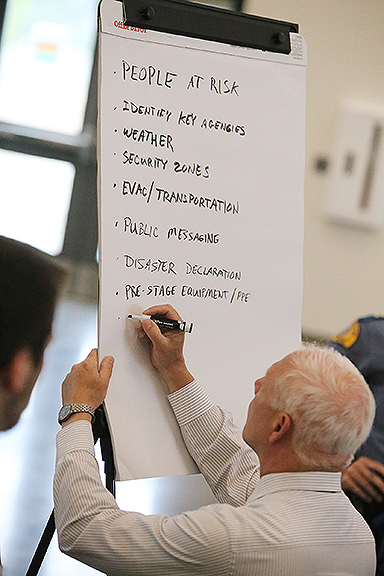 Office DEPOT
· PEOPLE AT RISK
· IDENTIFY KEY AGENCIES
· WEATHER
· SECURITY ZONES
· EVAC/TRANSPORTATION
· PUBLIC MESSAGING
· DISASTER DECLARATION
· PRE-STAGE EQUIPMENT/PPE
·